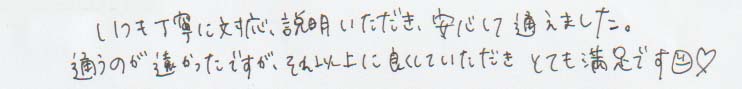 いつも丁寧に対応、説明いただき、安心して通えました。
通うのが遠かったですが、それ以上に良くしていただき とても満足です☺♡